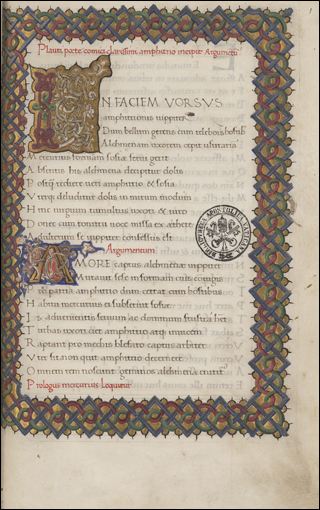 Plauti poete comici clarissimi amphitrio incipit Argumentū
IN FACIEM VORSVS
amphitrionis iuppiter
Dum bellum gereret cum telebois hostib
Alchmenam uxorem cepit usuraria
Mercurius formam sosiae serui gerit
Absentis his alchmena decipitur dolis
Postq rediere ueri amphitrio & sosia
Vterq deluditur dolis in mirum modum
Hinc iurgium tumultus uxori & uiro
Donec cum tonitru uoce missa ex aethere
Adulterum se iuppiter confessus est
Argumentum
AMORE captus alchmenae iuppiter
Mutauit sese in formam eius coniugis
Pro patria amphitrio dum certat cum hostibus
Habitu mercurius ei subseruit sosiae
Is aduenientis seruum ac dominum frustra het
Turbas uxori ciet amphitrio atq inuicem
Raptant pro mechis blefaro captus arbiter
Vter sit non quit amphitrio decernere
Omnem rem noscunt geminos alchmena
Prologus mercurius Loquitur